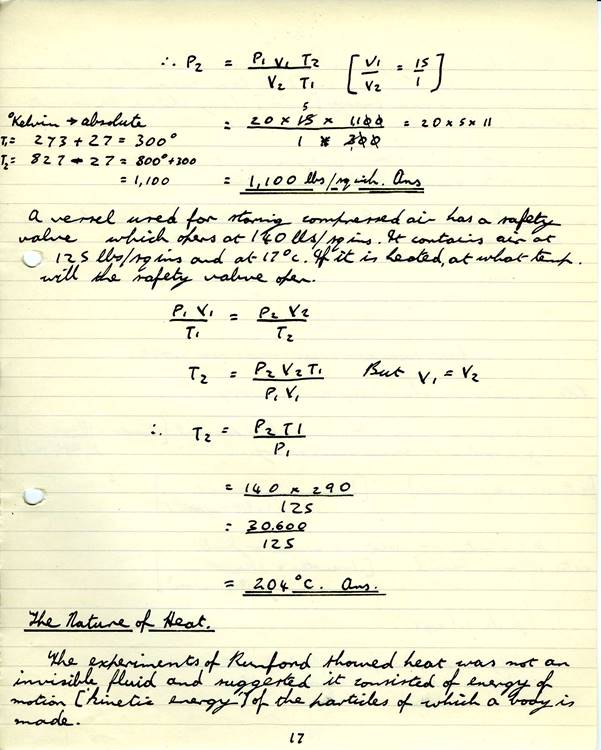 ∴ P2 = P1 V1 T2 / V2 T1 [ V1 / V2 = 15 / 1 ]
°Kelvin → absolute
T1 = 273 + 27 = 300°
T2 = 827 + 27 = 800° + 300
= 1,100
5
= 20 × 15 × 1100 / 1 × 300 = 20 × 5 × 11
= 1,100 lbs/sq inch. Ans
A vessel used for storing compressed air has a safety
valve which opens at 140 lbs/sq ins. It contains air at
125 lbs/sq ins and at 17°c. If it is heated, at what temp.
will the safety valve open.
P1 V1 / T1 = P2 V2 / T2
T2 = P2 V2 T1 / P1 V1 But V1 = V2
∴ T2 = P2 T1 / P1
= 140 × 290 / 125
= 30.600 / 125
= 204°C. Ans.
The Nature of Heat.
The experiments of Rumford showed heat was not an
invisible fluid and suggested it consisted of energy of
motion [kinetic energy] of the particles of which a body is
made.
17